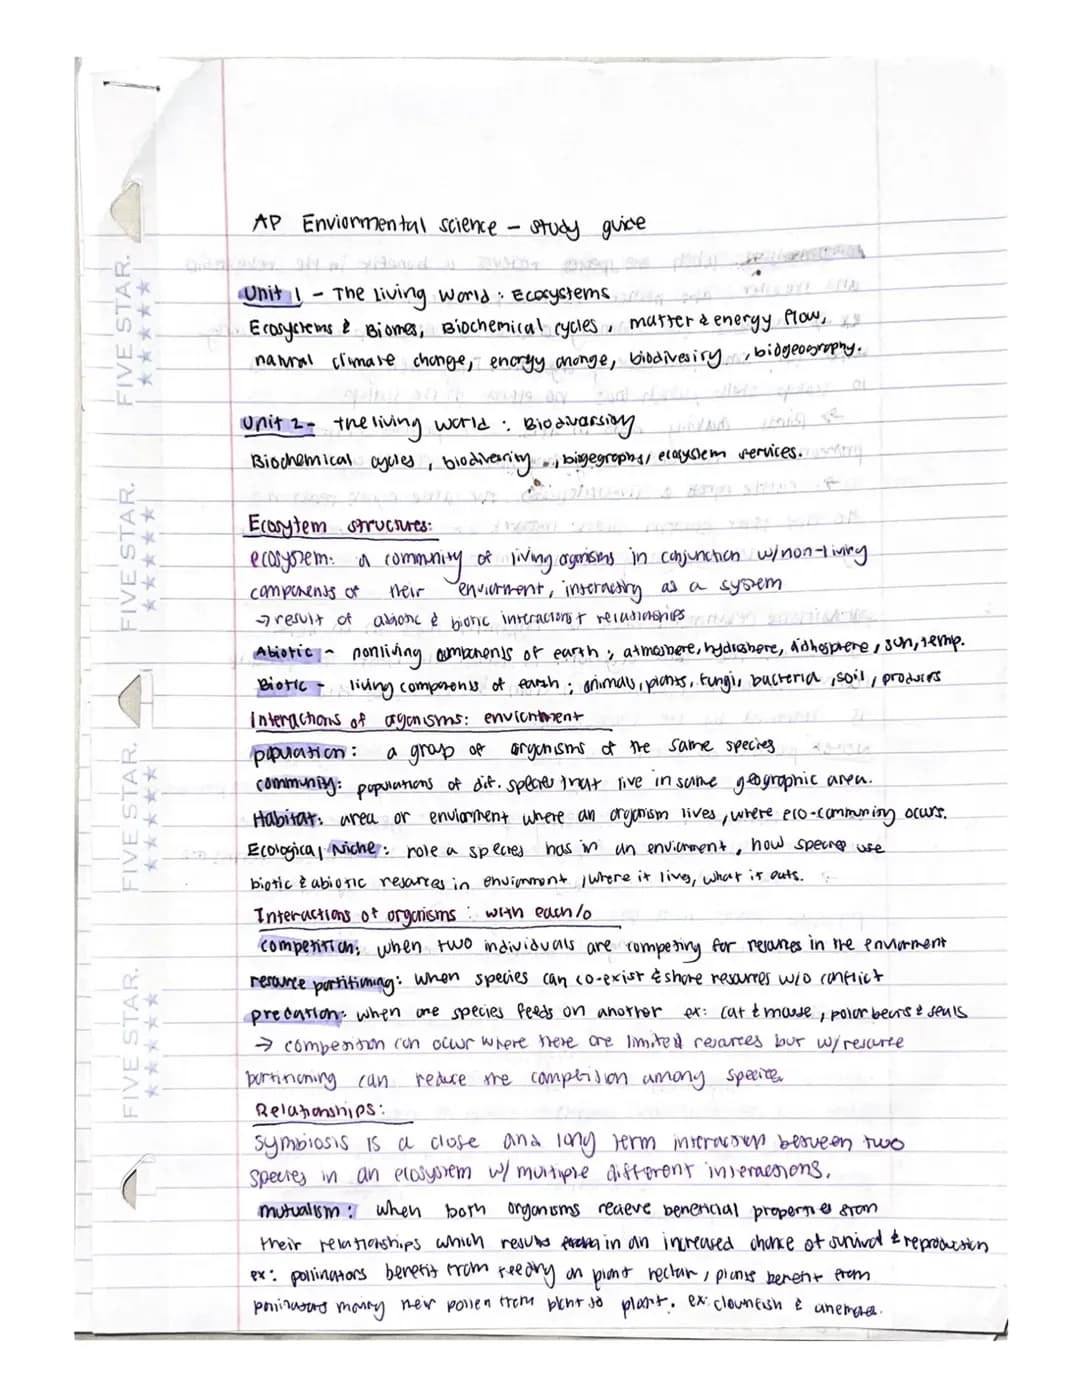 AP Enviormental science - study guide
Unit 1 - The Living World: Ecosystems
Ecosystems & Biomes, Biochemical cycles, matter & energy flow,
natural climate change, energy change, biodivesiry, biogeography.
Unit 2 - the living world: Biodiversity
Biochemical cycles, biodiversity, biogegraphy, ecosystem services.
Ecosytem structures:
ecosystem: a community of living organisms in conjunction w/non-living
components of their enviorment, interacting as a system
→ result of abiotic & biotic interactions + relationships
Abiotic - nonliving components of earth; atmosphere, hydrosphere, lithosphere, sun, temp.
Biotic - living components of earth; animals, plants, fungi, bacteria, soil, producers
Interactions of organisms: enviornment
population: a group of organisms of the same species
community: populations of dif. species that live in same geographic area.
Habitat: area or enviorment where an organism lives, where eco-communing ocurs.
Ecological Niche: role a species has in an enviorment, how species use
biotic & abiotic resources in enviornment, where it lives, what it eats.
Interactions of organisms: with each/o
competition: when two individuals are competing for resources in the enviorment
resource partitioning: when species can co-exist & share resources w/o conflict
predation: when one species feeds on another ex: cat & mouse, polar bears & seals
→ competition can occur where there are limited resources but w/resource
partitioning can reduce the competision among species.
Relationships:
Symbiosis is a close and long term interaction between two
species in an ecosystem w/ multiple different interactions.
mutualism: when both organisms recieve beneficial properties from
their relationships which results in an increased chance of survival & reproduction
ex: pollinators benefit from feeding on plant nectar, plants benefit from
pollinators moving their pollen from plant to plant. ex: clownfish & anemone.
FIVE STAR.
FIVE STAR.
FIVE STAR.
FIVE STAR.